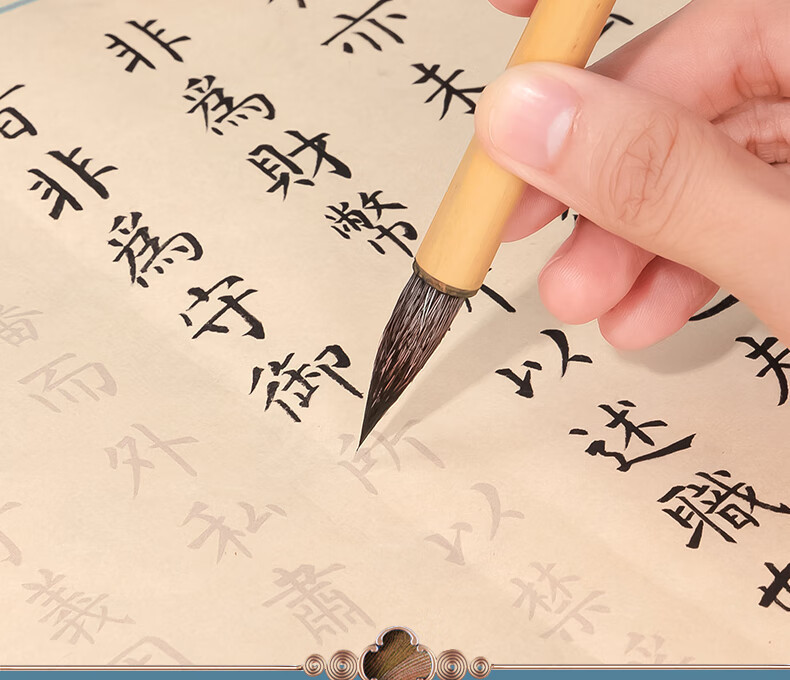 亦未
非為財幣以述職
非為守御所以禁
而外私肅
義